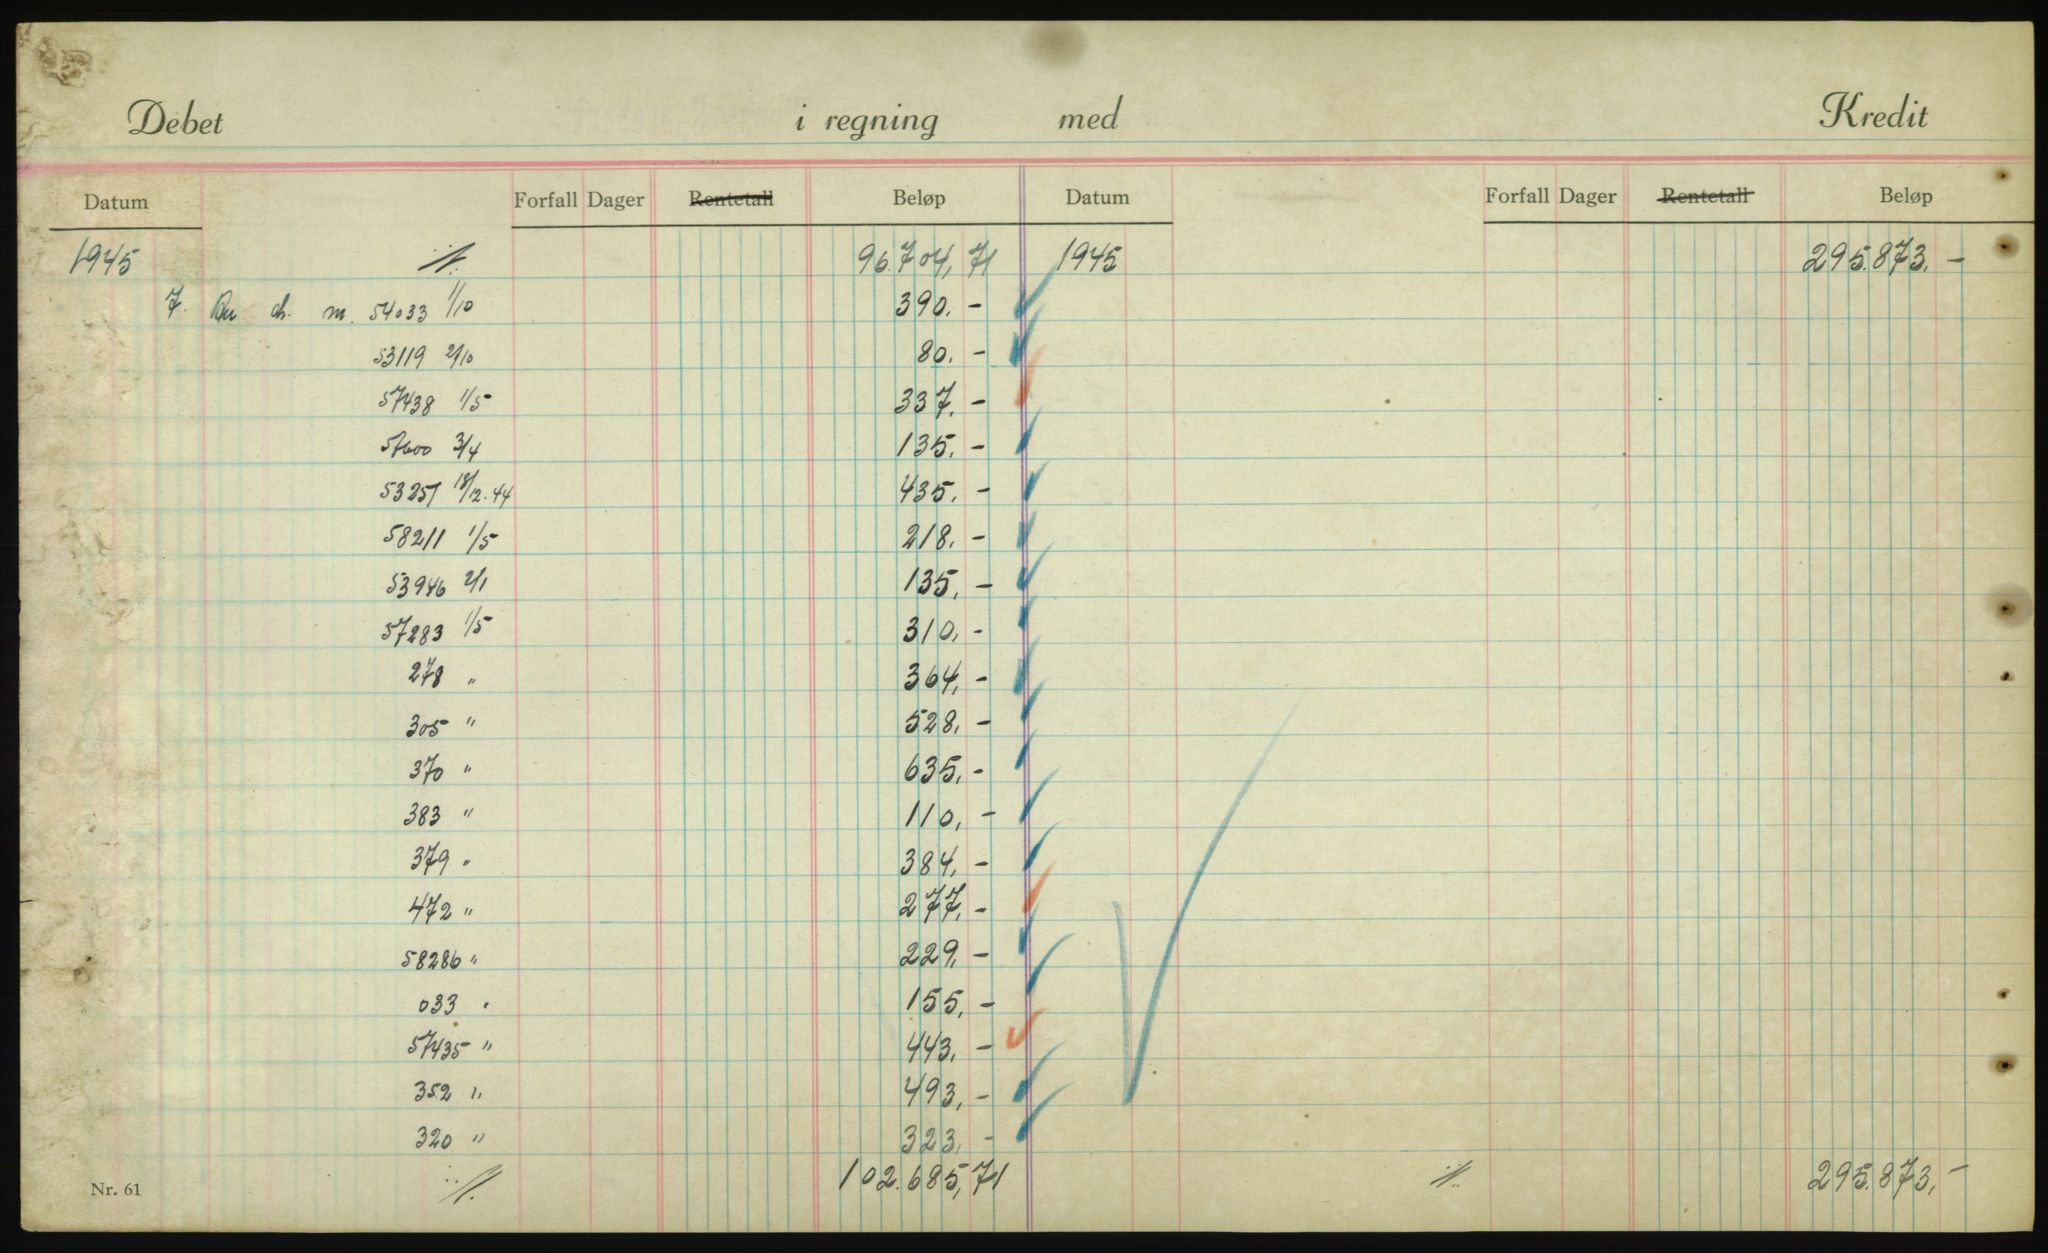 Debet i regning med Kredit
Datum Forfall Dager Rentetall Beløp Datum Forfall Dager Rentetall Beløp
1945 ·/· 96.704,71 1945 295.873,-
7. m. 54033 1/10 390,-
53119 2/10 80,-
57438 1/5 337,-
57600 3/4 135,-
53257 18/12.44 435,-
58211 1/5 218,-
53946 2/1 135,-
57283 1/5 310,-
278 " 364,-
305 " 528,-
370 " 635,-
383 " 110,-
379 " 384,-
472 " 277,-
58286 " 229,-
033 " 155,-
57435 " 443,-
352 " 493,-
320 " 323,-
Nr. 61 ·/· 102.685,71 ·/· 295.873,-